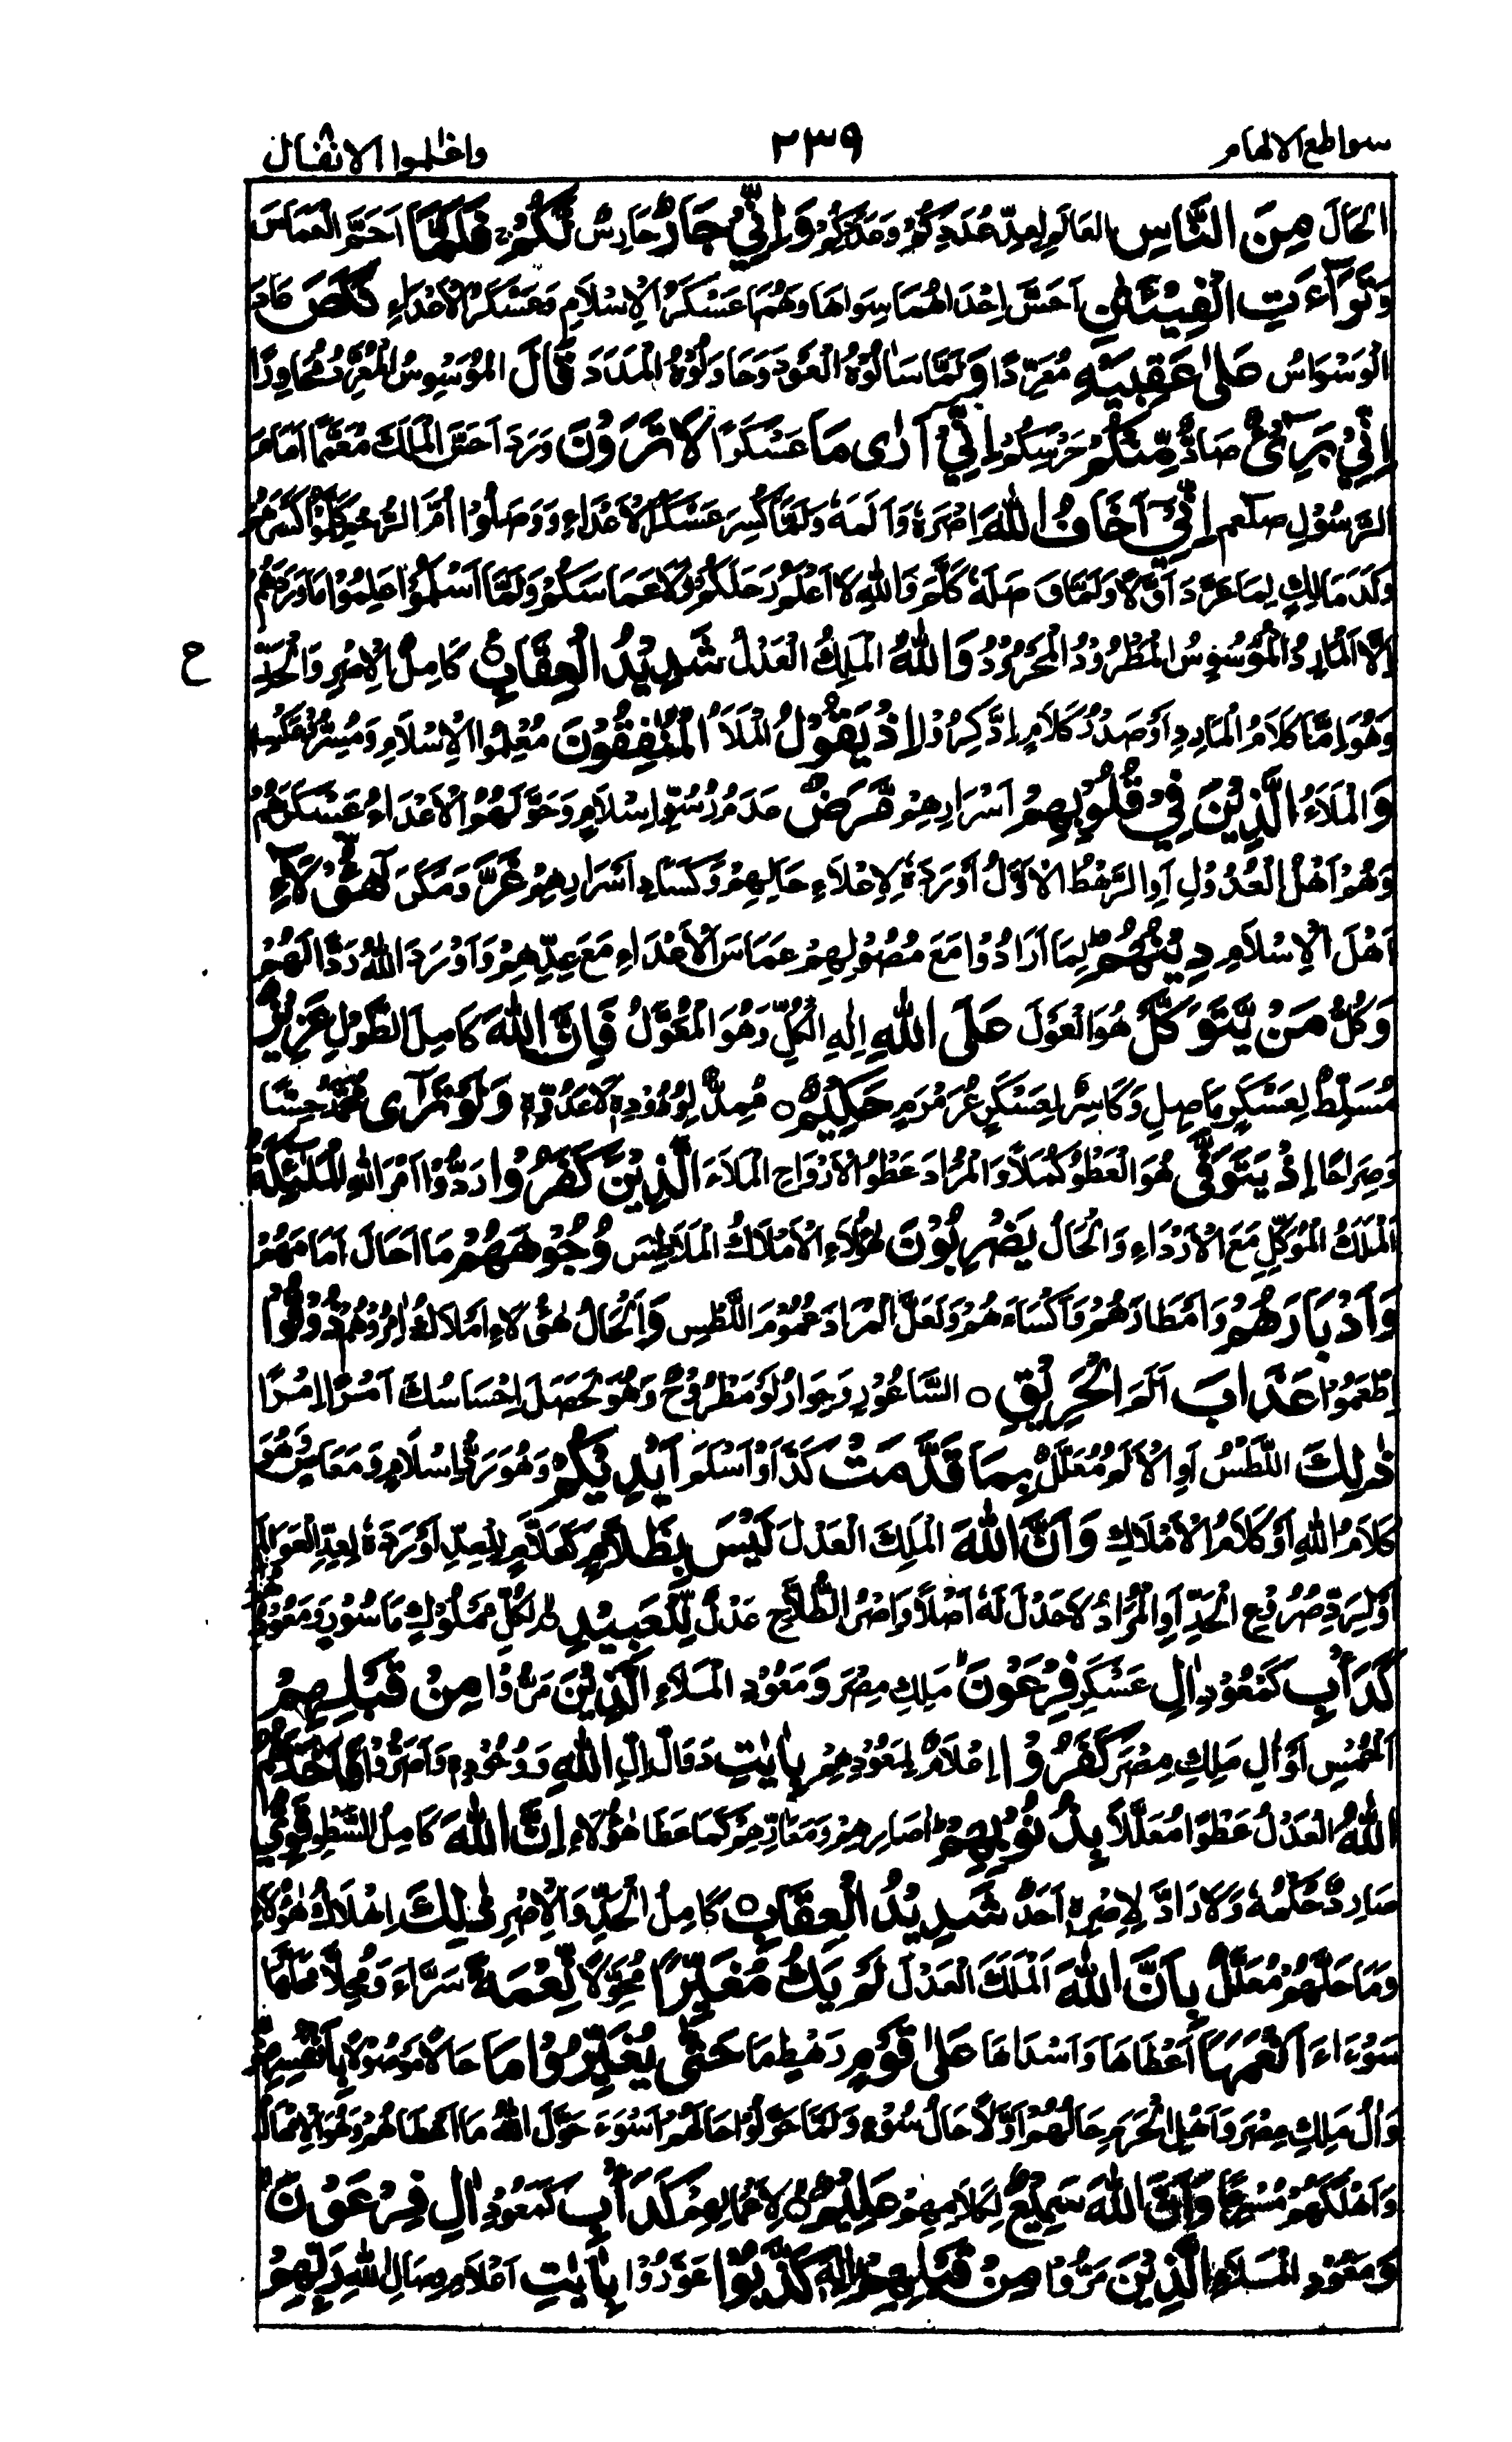 سواطع الالهام ٢٣٩ واعلموا الانفال
الحال مِنَ النَّاسِ العالم لِعَدِّ عُدَدِكُمْ وَعَدَدِكُمْ وَاِنِّيْ جَارٌ حَارِسٌ لَّكُمْ فَلَمَّا اَحَمَّ الْعَمَاسَ
وَتَرَآءَتِ الْفِئَتٰنِ اَحَسَّ اِحْدَاهُمَا سِوَاهَا وَهُمَا عَسْكَرُ الْاِسْلَامِ وَعَسْكَرُ الْاَعْدَاءِ نَكَصَ عَادَ
الْوَسْوَاسُ عَلٰى عَقِبَيْهِ مُعَرِّدًا وَلَمَّا سَاَلُوْهُ الْعَوْدَ وَحَاوَلُوْهُ الْمَدَدَ قَالَ الْمُوَسْوِسُ الْمُعَرِّدُ مُحَاوِرًا
اِنِّيْ بَرِيْٓءٌ صَادٌّ مِّنْكُمْ حَرْسِكُمْ اِنِّيْٓ اَرٰى مَا عَسْكَرًا لَا تَرَوْنَ وَرَدَ اَحَسَّ الْمَلَكَ مُعَمَّمًا اَمَامَ
الرَّسُوْلِ صلعم اِنِّيْٓ اَخَافُ اللّٰهَ اِصْرَهٗ وَاَلَمَهٗ وَلَمَّا كُسِرَ عَسْكَرُ الْاَعْدَاءِ وَوَصَلُوْا اُمَّ الرُّحْمِ كَلَّمُوْا كَسَرَهُمْ
وَلَدُ مَالِكٍ لِمَا عَرَّدَ اَوَّلًا وَلَمَّا وَصَلَهٗ كَلَّمَ وَاللّٰهِ لَا اَعْلَمُ رَحْلَكُمْ وَلَا عَمَاسَكُمْ وَلَمَّا اَسْلَمُوْا عَلِمُوْا مَا وَرَدَهُمْ
اِلَّا الْمَارِدُ الْمُوَسْوِسُ الْمَطْرُوْدُ الْمَحْرُوْمُ وَاللّٰهُ الْمَلِكُ الْعَدْلُ شَدِيْدُ الْعِقَابِ كَامِلُ الْاِصْرِ وَالْحَدِّ
ح
وَهُوَ اِمَّا كَلَامُ الْمَارِدِ اَوْ صَدْرُ كَلَامٍ اِدَّكِرُوْا اِذْ يَقُوْلُ الْمَلَاُ الْمُنٰفِقُوْنَ مُعْلِمُوا الْاِسْلَامِ وَمُسِرُّوْا عَكْسِهٖ
وَالْمَلَاُ الَّذِيْنَ فِيْ قُلُوْبِهِمْ اَسْرَارِهِمْ مَّرَضٌ عَدَمُ رُسُوِّ اِسْلَامٍ وَحَوْلَهُمُ الْاَعْدَاءُ عَسْكَرَهُمْ
وَهُمْ اَهْلُ الْعُدُوْلِ اَوِ الرَّهْطُ الْاَوَّلُ اَوْرَدَهٗ لِاِعْلَاءِ حَالِهِمْ وَكَسَادِ اَسْرَارِهِمْ غَرَّ وَمَكَرَ هٰٓؤُلَآءِ
اَهْلَ الْاِسْلَامِ دِيْنُهُمْ لِمَا اَرَادُوْا مَعَ مُصُوْلِهِمْ عَمَاسَ الْاَعْدَاءِ مَعَ عِدِّهِمْ وَاَوْرَدَ اللّٰهُ رَدًّا لَهُمْ
وَكُلُّ مَنْ يَّتَوَكَّلْ هُوَ الْعَوَلُ عَلَى اللّٰهِ اِلٰهِ الْكُلِّ وَهُوَ الْمُعَوَّلُ فَاِنَّ اللّٰهَ كَامِلُ الطَّوْلِ عَزِيْزٌ
مُسَلِّطٌ لِعَسْكَرٍ مَاصِلٍ وَكَاسِرٌ لِعَسْكَرٍ عَرَمْرَمٍ حَكِيْمٌ مُمِدٌّ لِوُدُوْدِهٖ لَا عَدُوِّهٖ وَلَوْ تَرٰٓى مُحَمَّدُ حِسًّا
وَصِرَاحًا اِذْ يَتَوَفَّى هُوَ الْعَطْوُ كَمَلًا وَالْمُرَادُ عَطْوُ الْاَرْوَاحِ الْمَلَاَ الَّذِيْنَ كَفَرُوْا رَدُّوْا اَمْرَ اللّٰهِ الْمَلٰٓئِكَةُ
اَلْمَلَكُ الْمُوَكَّلُ مَعَ الْاَرْدَاءِ وَالْحَالُ يَضْرِبُوْنَ هٰؤُلَاءِ الْاَمْلَاكُ الْمَلَاطِسَ وُجُوْهَهُمْ مَا اَحَالَ اَمَامَهُمْ
وَاَدْبَارَهُمْ وَاَمْطَاءَهُمْ وَاَكْسَاءَهُمْ وَلَعَلَّ الْمُرَادَ عُمُوْمُ اللَّطْسِ وَالْحَالُ هٰؤُلَاءِ اَمْلَاكٌ اٰمِرُوْهُمْ ذُوْقُوْا
اِطْعَمُوْا عَذَابَ اَلَمَ الْحَرِيْقِ السَّاعُوْرِ وَحِوَارُ لَوْ مَطْرُوْحٌ وَهُوَ لَحَصَلَ اِحْسَاسُكَ اَمْرًا اِمْرًا
ذٰلِكَ اللَّطْسُ اَوِ الْاَلَمُ مُعَلَّلٌ بِمَا قَدَّمَتْ كَدًّا اَوْ اَسْلَمَ اَيْدِيْكُمْ وَهُوَ رَدُّ اِسْلَامٍ وَمَعَاصٍ وَهُوَ
كَلَامُ اللّٰهِ اَوْ كَلَامُ الْاَمْلَاكِ وَاَنَّ اللّٰهَ الْمَلِكَ الْعَدْلَ لَيْسَ بِظَلَّامٍ كَعَلَّامٍ لِلْعَدِّ اَوْرَدَهٗ لِعَدِّ الْعَوَالِمِ
اَوْ لِرَدِّ صُرُوْعِ الْحَدِّ اَوِ الْمُرَادُ لَا حَدْلَ لَهٗ اَصْلًا وَاِصْرُ الطُّلَّاحِ عَدْلٌ لِّلْعَبِيْدِ لِكُلِّ مَمْلُوْكٍ مَاسُوْرٍ وَمَعْوَدُهُمْ
كَدَاْبِ كَمَعْوَدِ اٰلِ عَسْكَرِ فِرْعَوْنَ مَلِكِ مِصْرَ وَمَعْوَدِ الْمَلَاِ الَّذِيْنَ مَرُّوْا مِنْ قَبْلِهِمْ
الْحُمْسِ اَوْ اٰلِ مَلِكِ مِصْرَ كَفَرُوْا اِعْلَامٌ لِمَعْوَدِهِمْ بِاٰيٰتِ دَوَالِّ اِلِّ اللّٰهِ وَوُحُوْدِهٖ وَاَصَرُّوْا فَاَخَذَهُمُ
اللّٰهُ الْعَدْلُ عَطْوًا مُعَلَّلًا بِذُنُوْبِهِمْ اٰصَارِهِمْ وَمَعَارِّهِمْ كَمَا عَطَا هٰؤُلَاءِ اِنَّ اللّٰهَ كَامِلُ السَّطْوِ قَوِيٌّ
صَارِدٌ حُكْمُهٗ وَلَا رَادَّ لِاِصْرِهٖ اَحَدٌ شَدِيْدُ الْعِقَابِ كَامِلُ الْحَدِّ وَالْاِصْرِ ذٰلِكَ اِهْلَاكُ هٰؤُلَاءِ
وَمَا حَلَّهُمْ مُعَلَّلٌ بِاَنَّ اللّٰهَ الْمَلِكَ الْعَدْلَ لَمْ يَكُ مُغَيِّرًا مُحَوِّلًا نِّعْمَةً سَرَّاءَ وَمُحِلًّا مَحَلَّهَا
سَوْءَاءَ اَنْعَمَهَا اَعْطَاهَا وَاَسْدَاهَا عَلٰى قَوْمٍ رَهْطٍ مَا حَتّٰى يُغَيِّرُوْا مَا حَالًا مَوْصُوْلًا بِاَنْفُسِهِمْ
وَاٰلُ مَلِكِ مِصْرَ وَاَهْلُ الْحَرَمِ حَالُهُمْ اَوَّلًا حَالُ سُوْءٍ وَلَمَّا حَوَّلُوْا حَالَهُمْ اَسْوَءَ حَوَّلَ اللّٰهُ مَا اَعْطَاهُمْ وَهُوَ الْاِمْهَالُ
وَاَهْلَكَهُمْ مُسْرِعًا وَاَنَّ اللّٰهَ سَمِيْعٌ لِكَلَامِهِمْ عَلِيْمٌ لِاَعْمَالِهِمْ كَدَاْبِ كَمَعْوَدِ اٰلِ فِرْعَوْنَ
وَمَعْوَدِ الْمَلَاِ الَّذِيْنَ مَرُّوْا مِنْ قَبْلِهِمْ كَذَّبُوْا عَوَّرُوْا بِاٰيٰتِ اَعْلَامِ اللّٰهِ رَبِّهِمْ